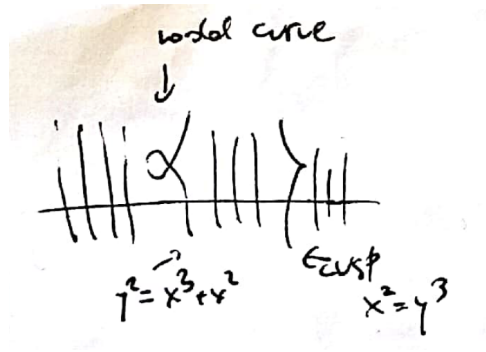 nodal curve
y² = x³+x²
cusp
x² = y³